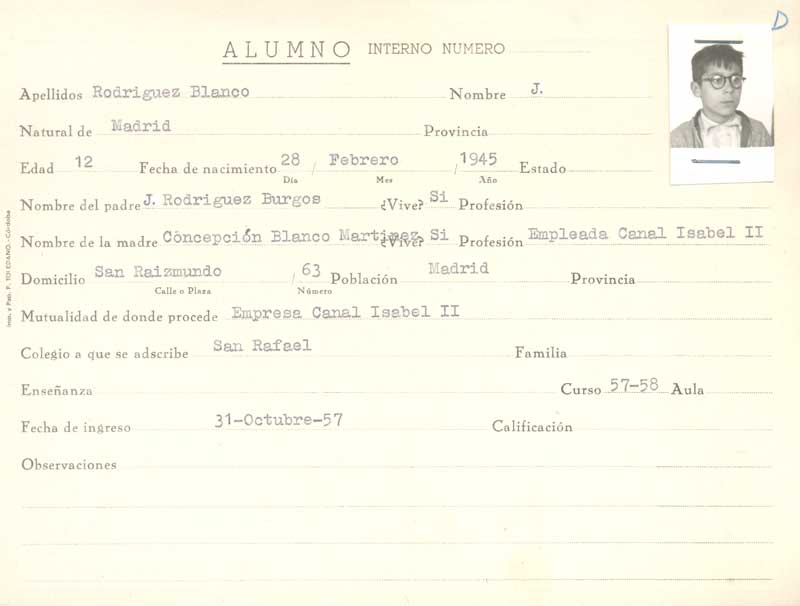 D
ALUMNO INTERNO NUMERO
Apellidos Rodriguez Blanco Nombre J.
Natural de Madrid Provincia
Edad 12 Fecha de nacimiento 28 / Febrero / 1945 Estado
Día Mes Año
Nombre del padre J. Rodriguez Burgos ¿Vive? Si Profesión
Nombre de la madre Concepción Blanco Martinez ¿Vive? Si Profesión Empleada Canal Isabel II
Domicilio San Raizmundo / 63 Población Madrid Provincia
Calle o Plaza Número
Mutualidad de donde procede Empresa Canal Isabel II
Colegio a que se adscribe San Rafael Familia
Enseñanza Curso 57-58 Aula
Fecha de ingreso 31-Octubre-57 Calificación
Observaciones
Imp. y Pap. F. TOLEDANO.-Córdoba